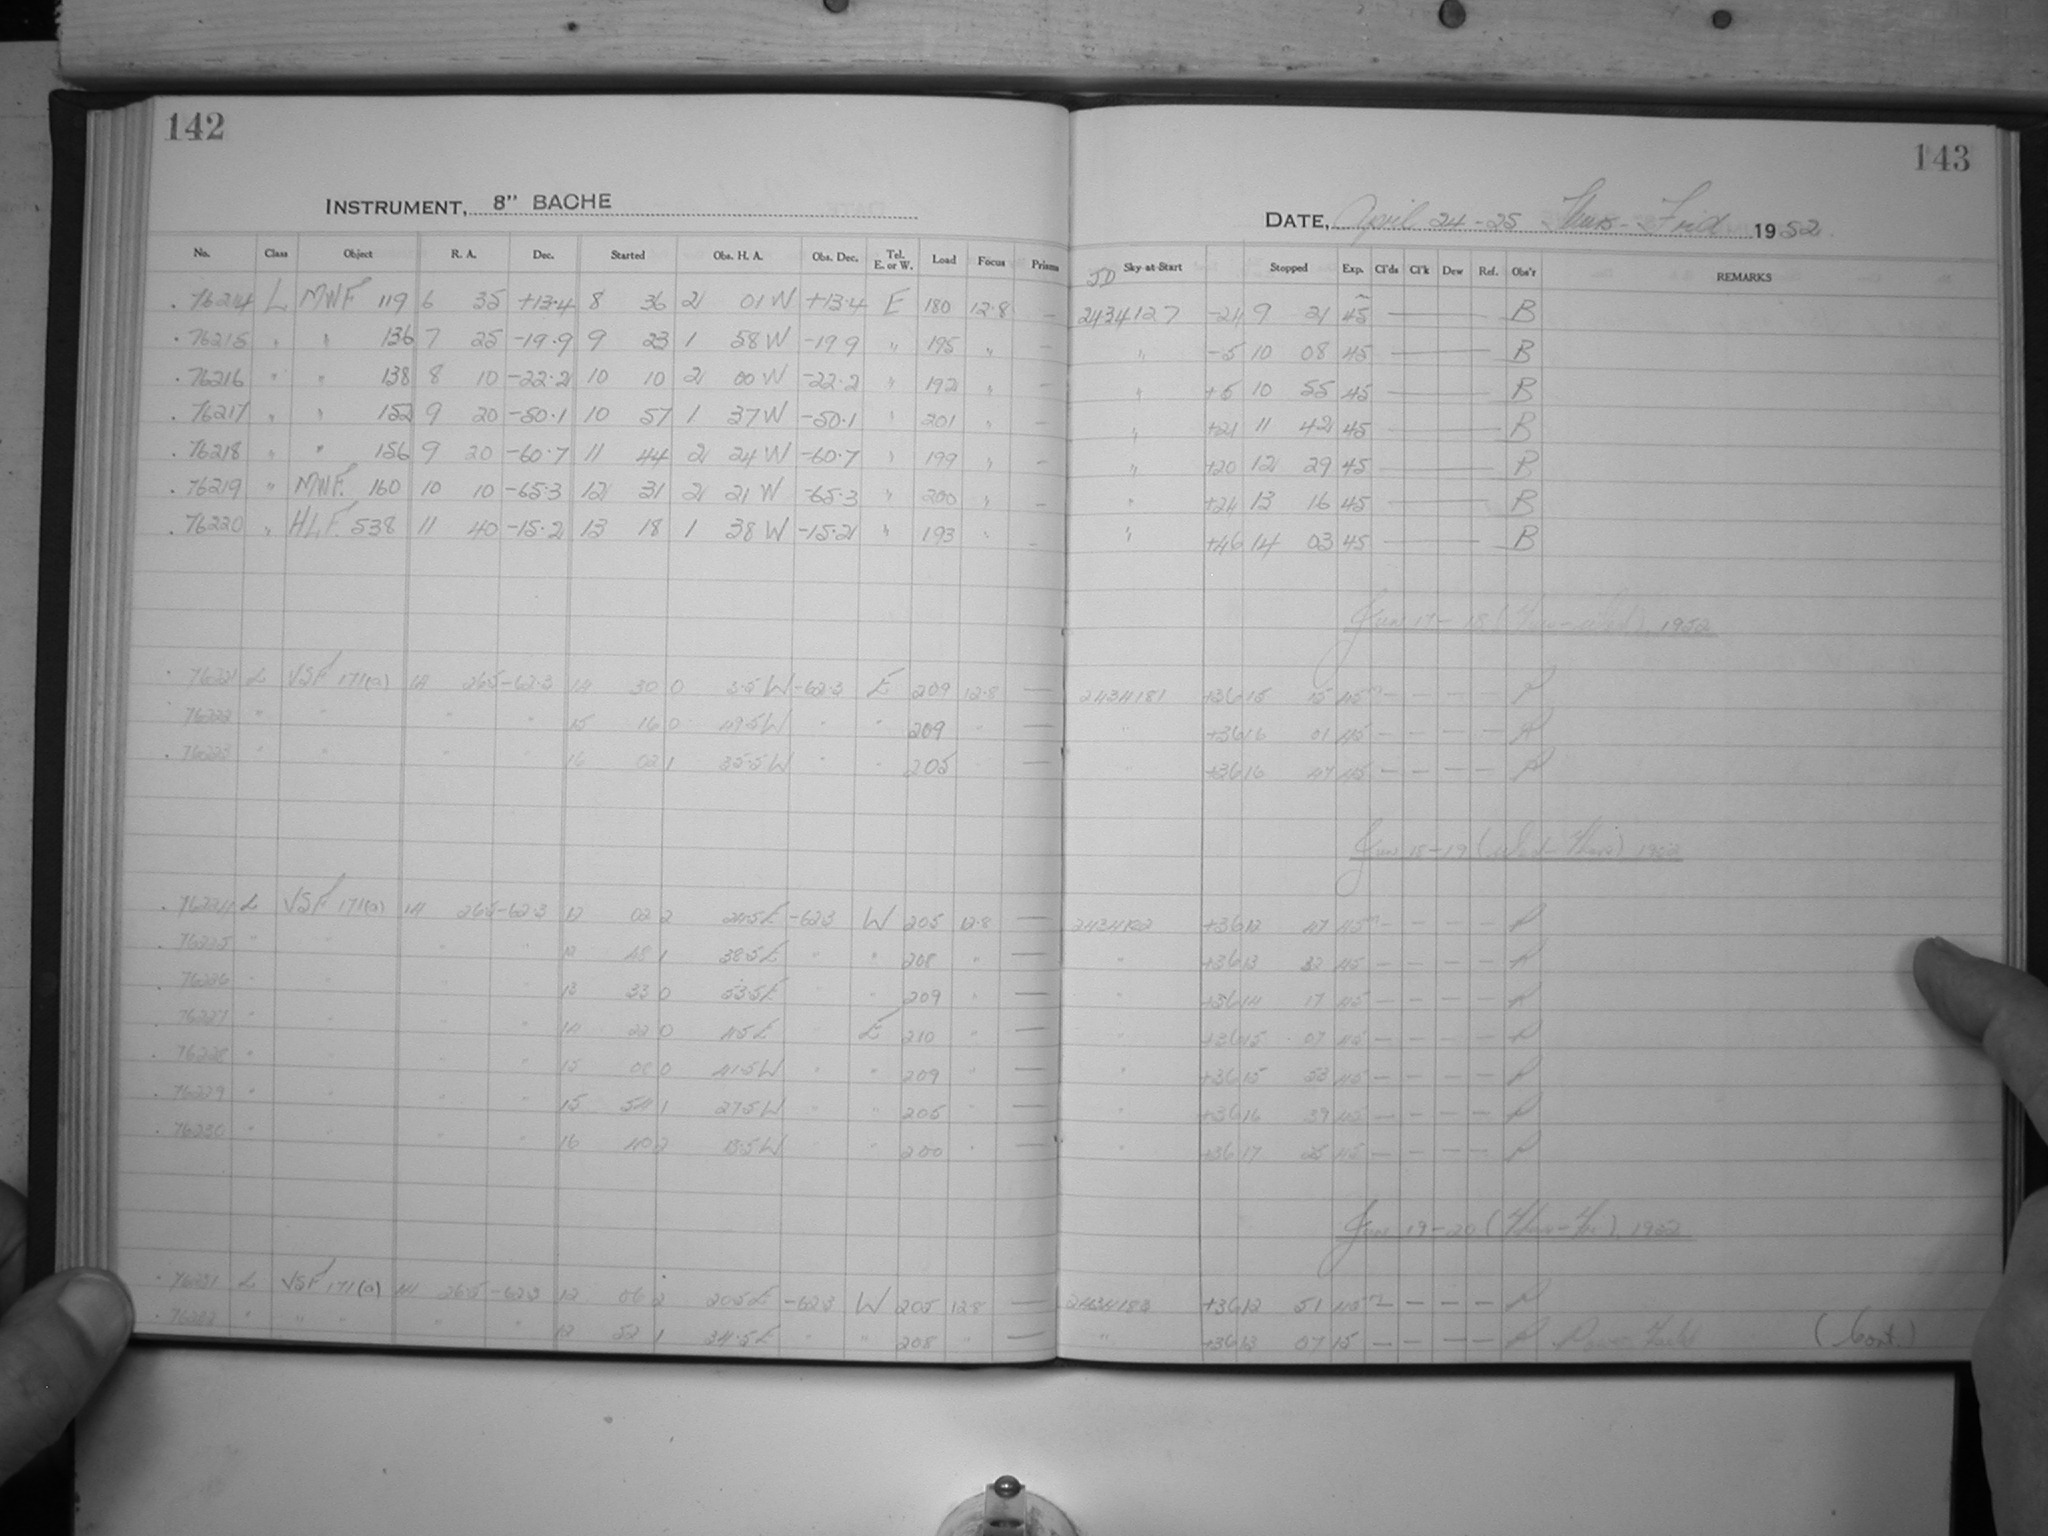 142
143
INSTRUMENT, 8" BACHE
DATE, April 24-25 Thurs-Frid 1952
No. Class Object R. A. Dec. Started Obs. H. A. Obs. Dec. Tel. E. or W. Load Focus Prisms JD Sky-at-Start Stopped Exp. Cl'ds Cl'k Dew Ref. Obs'r REMARKS
76214 L MWF 119 6 35 +13.4 8 36 2 01 W +13.4 E 180 12.8 — 2434127 9 21 45 B
76215 " " 136 7 25 -19.9 9 23 1 58 W -19 9 " 195 " — " -5 10 08 45 B
76216 " " 138 8 10 -22.2 10 10 2 00 W -22.2 " 192 " — " 10 55 45 B
76217 " " 152 9 20 -50.1 10 57 1 37 W -50.1 " 201 " — " +21 11 42 45 B
76218 " " 156 9 20 -60.7 11 44 2 24 W -60.7 " 199 " — " +20 12 29 45 B
76219 " MWF. 160 10 10 -65.3 12 31 2 21 W -65.3 " 200 " — " 13 16 45 B
76220 " HLF. 538 11 40 -15.2 13 18 1 38 W -15.2 " 193 " — " +46 14 03 45 B
Jun 17-18 (Tues-Wed), 1952
76221 L VSF 171(a) 14 26.5 -62.3 14 30 0 3.5 W -62.3 E 209 12.8 — 2434181 +36 15 15 45m — — — —
76222 " " " " 15 16 0 49.5 W " " 209 " — " +36 16 01 45 — — — —
76223 " " " " 16 02 1 35.5 W " " 205 " — " +36 16 47 45 — — — —
Jun 18-19 (Wed-Thurs) 1952
76224 L VSF 171(a) 14 26.5 -62.3 12 02 2 24.5 E -62.3 W 205 12.8 — 2434182 +36 12 47 45m — — — —
76225 " " " " 12 48 1 38.5 E " " 208 " — " +36 13 32 45 — — — —
76226 " " " " 13 33 0 53.5 E " " 209 " — " +36 14 17 45 — — — —
76227 " " " " 14 22 0 4.5 E " E 210 " — " +36 15 07 45 — — — —
76228 " " " " 15 08 0 41.5 W " " 209 " — " +36 15 53 45 — — — —
76229 " " " " 15 54 1 27.5 W " " 205 " — " +36 16 39 45 — — — —
76230 " " " " 16 40 2 13.5 W " " 200 " — " +36 17 25 45 — — — —
Jun 19-20 (Thurs-Fri), 1952
76231 L VSF 171(a) 14 26.5 -62.3 12 06 2 20.5 E -62.3 W 205 12.8 — 2434183 +36 12 51 45m — — — —
76232 " " " " " 12 52 1 34.5 E " " 208 " — " +36 13 07 15 — — — — Power Failed (Cont.)